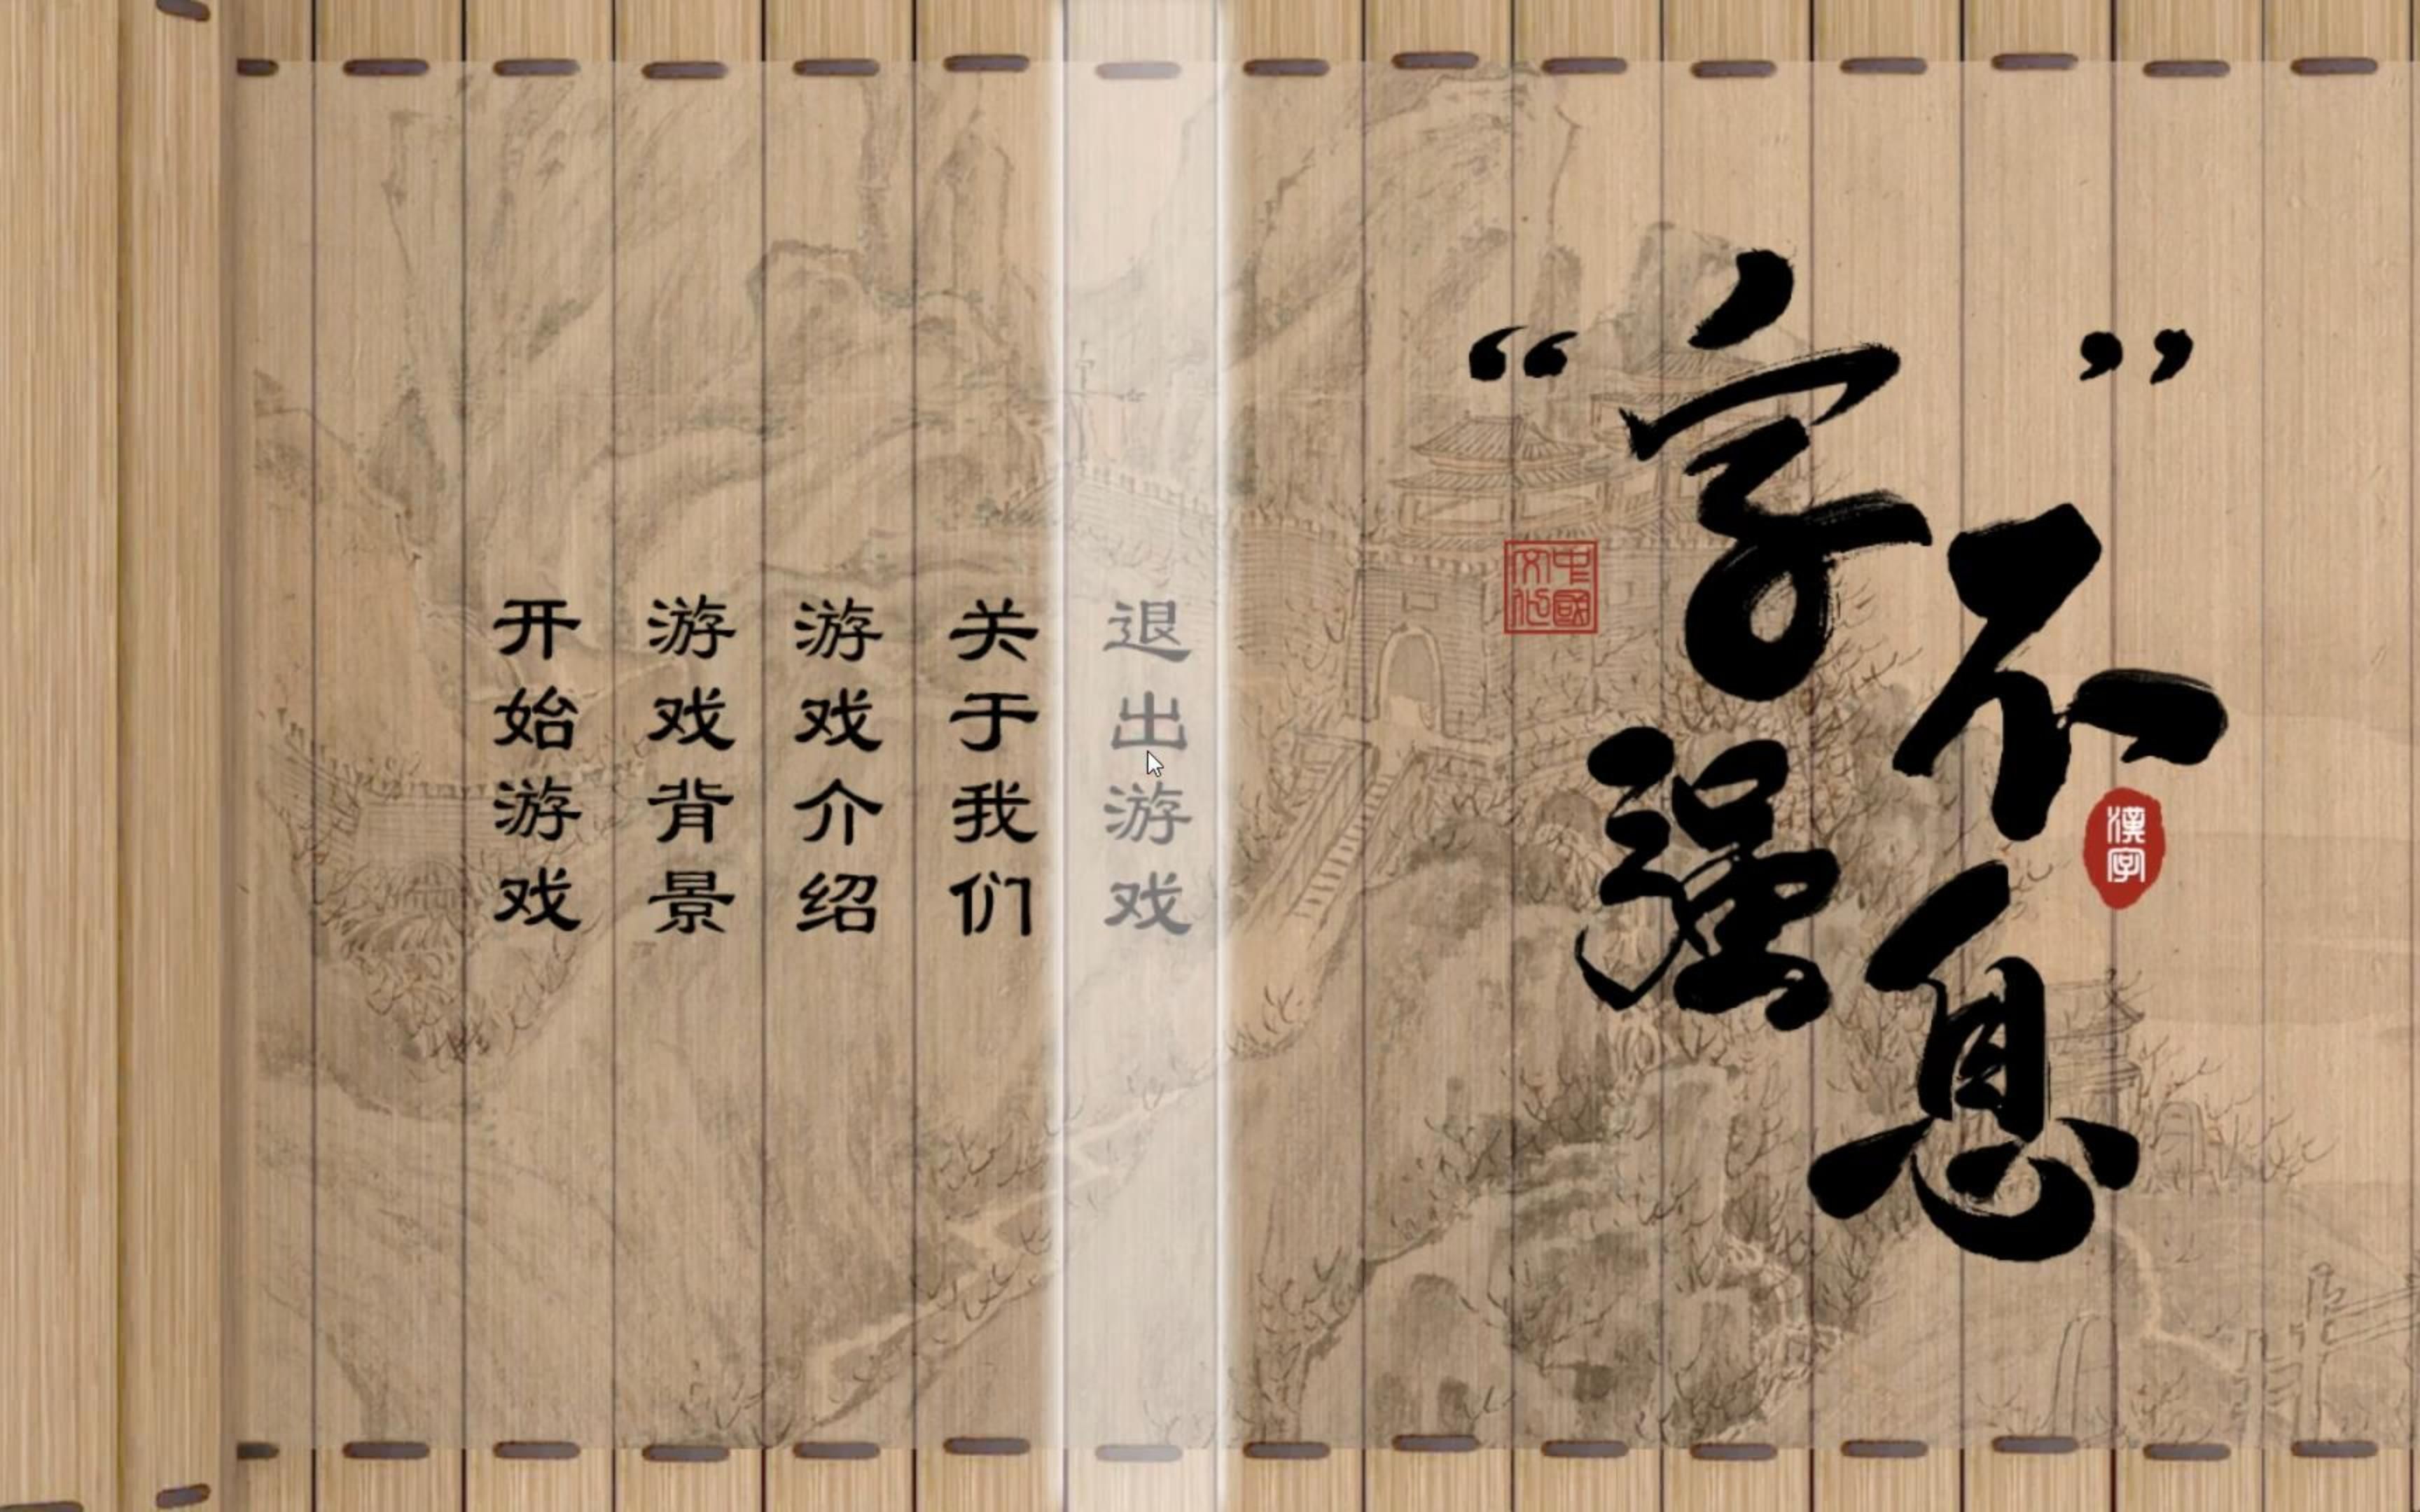 开始游戏
游戏背景
游戏介绍
关于我们
退出游戏
“字强不息”
中國文化
漢字